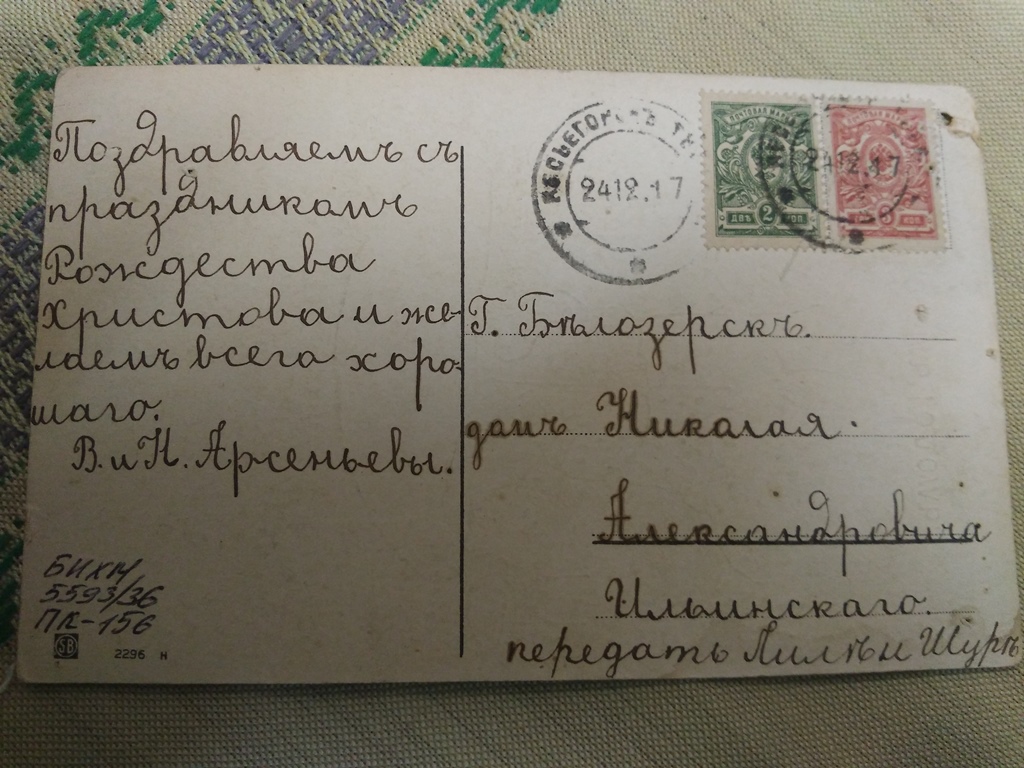 Поздравляемъ съ
праздникомъ
Рождества
Христова и же-
лаемъ всего хоро-
шаго.
В. и Н. Арсеньевы.
БИХМ
5593/36
ПК-156
SB
2296 н
ВЕСЬЕГОНСКЪ ТВ
24 12.17
ПОЧТОВАЯ МАРКА
ДВѢ 2 КОП.
24 12.17
ПОЧТОВАЯ МАРКА
КОП.
Г. Бѣлозерскъ.
домъ Николая
Александровича
Ильинскаго.
передать Лилѣ и Шурѣ